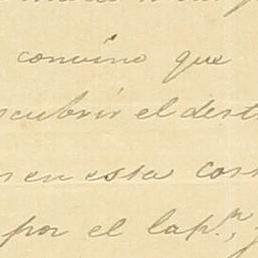 convino que
scubrir el dest
en esta cos
por el lap.n,